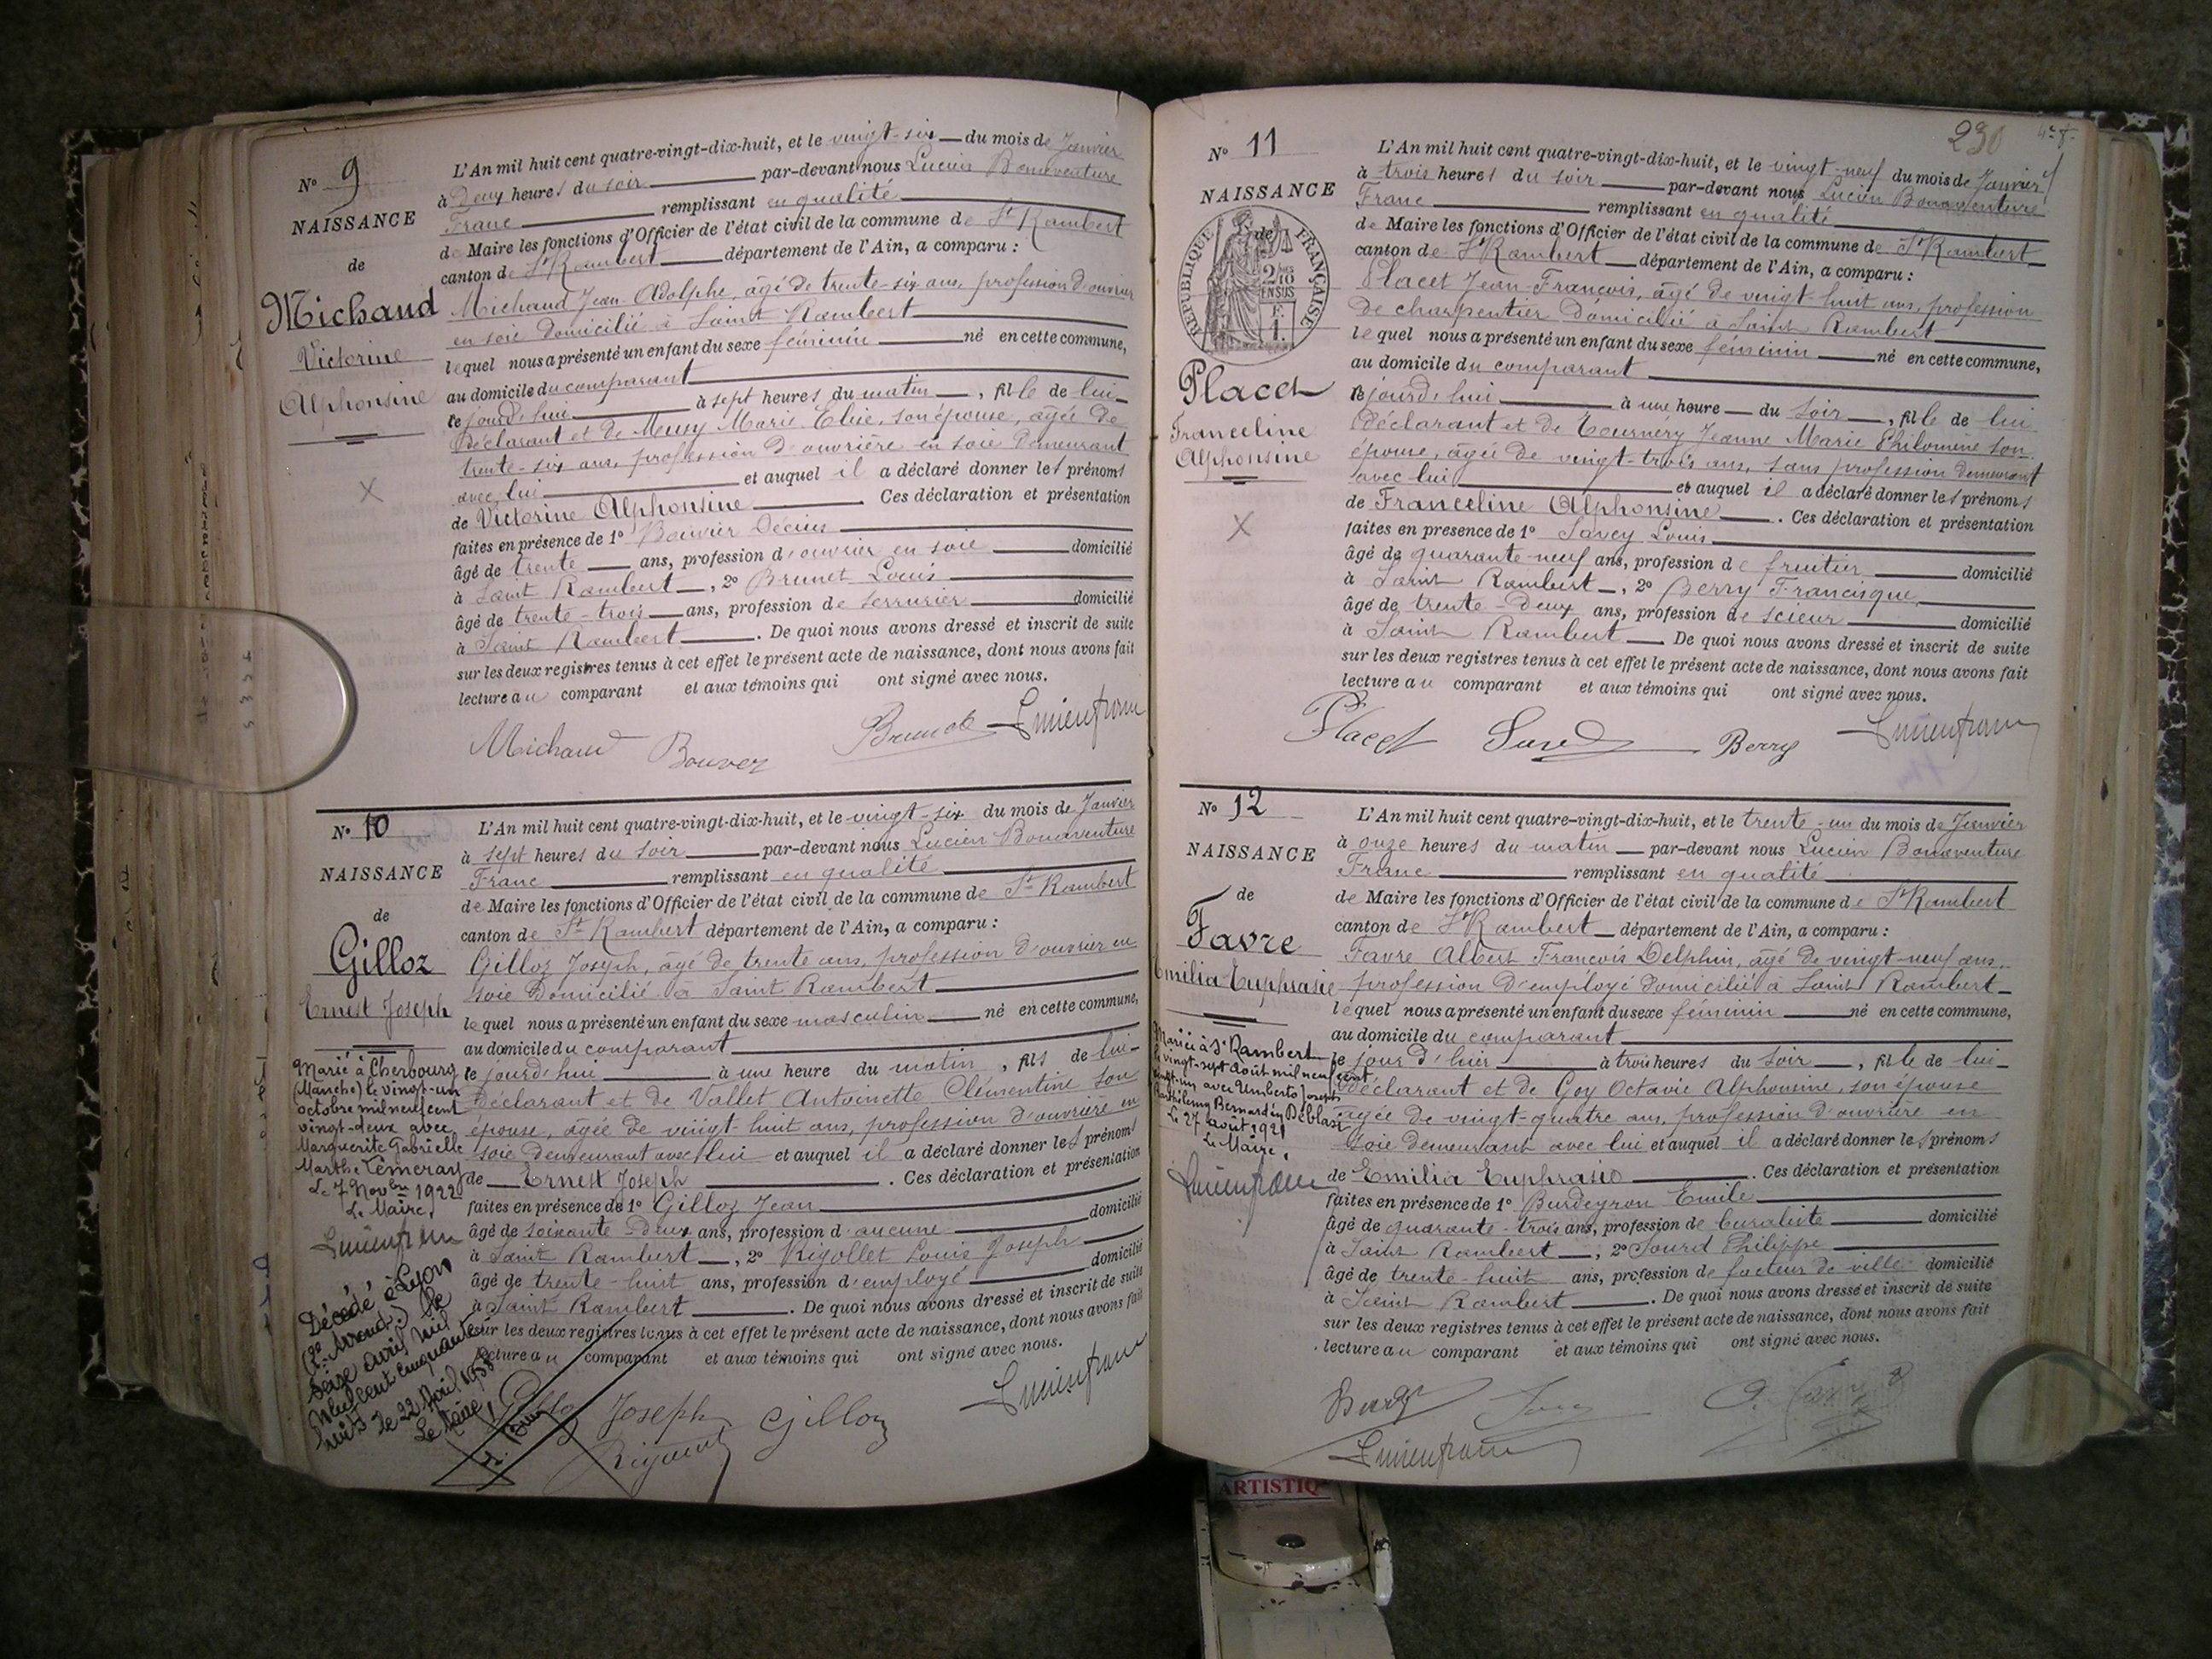 N° 9
NAISSANCE
de
Michaud
Victorine
Alphonsine
L'An mil huit cent quatre-vingt-dix-huit, et le vingt-six du mois de Janvier
à Deux heures du soir par-devant nous Lucien Bonaventure
Franc remplissant en qualité
de Maire les fonctions d'Officier de l'état civil de la commune de St Rambert
canton de St Rambert département de l'Ain, a comparu :
Michaud Jean Adolphe, âgé de trente-six ans, profession d'ouvrier
en soie domicilié à Saint Rambert
lequel nous a présenté un enfant du sexe féminin né en cette commune,
au domicile du comparant
le jourd'hui à sept heures du matin, fille de lui
déclarant et de Marie Elise, son épouse, âgée de
trente-six ans, profession d'ouvrière en soie demeurant
avec lui et auquel il a déclaré donner les prénoms
de Victorine Alphonsine. Ces déclaration et présentation
faites en présence de 1° Bouvier Décius
âgé de trente ans, profession d'ouvrier en soie domicilié
à Saint Rambert, 2° Brunet Louis
âgé de trente-trois ans, profession de serrurier domicilié
à Saint Rambert. De quoi nous avons dressé et inscrit de suite
sur les deux registres tenus à cet effet le présent acte de naissance, dont nous avons fait
lecture au comparant et aux témoins qui ont signé avec nous.
Michaud Bouvier Brunet Lucien franc
N° 10
NAISSANCE
de
Gilloz
Ernest Joseph
Marié à Cherbourg
(Manche) le vingt-un
octobre mil neuf cent
vingt-deux avec
Marguerite Gabrielle
Marthe Lemeray
Le 7 Novbre 1922
Le Maire,
Lucien franc
Décédé à Lyon
(2e Arrond.) le
seize avril mil
neuf cent cinquante
huit le 22 Avril 1958
Le Maire,
L'An mil huit cent quatre-vingt-dix-huit, et le vingt-six du mois de Janvier
à sept heures du soir par-devant nous Lucien Bonaventure
Franc remplissant en qualité
de Maire les fonctions d'Officier de l'état civil de la commune de St Rambert
canton de St Rambert département de l'Ain, a comparu :
Gilloz Joseph, âgé de trente ans, profession d'ouvrier en
soie Domicilié à Saint Rambert
lequel nous a présenté un enfant du sexe masculin né en cette commune,
au domicile du comparant
le jourd'hui à une heure du matin, fils de lui
déclarant et de Vallet Antoinette Clémentine son
épouse, âgée de vingt-huit ans, profession d'ouvrière en
soie demeurant avec lui et auquel il a déclaré donner les prénoms
de Ernest Joseph. Ces déclaration et présentation
faites en présence de 1° Gilloz Jean
âgé de soixante-deux ans, profession d'aucune domicilié
à Saint Rambert, 2° Rigollet Louis Joseph
âgé de trente-huit ans, profession d'employé domicilié
à Saint Rambert. De quoi nous avons dressé et inscrit de suite
sur les deux registres tenus à cet effet le présent acte de naissance, dont nous avons fait
lecture au comparant et aux témoins qui ont signé avec nous.
Gilloz Joseph Gilloz Lucien franc
230
N° 11
NAISSANCE
de
RÉPUBLIQUE FRANÇAISE
Placet
Franceline
Alphonsine
L'An mil huit cent quatre-vingt-dix-huit, et le vingt-neuf du mois de Janvier
à trois heures du soir par-devant nous Lucien Bonaventure
Franc remplissant en qualité
de Maire les fonctions d'Officier de l'état civil de la commune de St Rambert
canton de St Rambert département de l'Ain, a comparu :
Placet Jean-François, âgé de vingt-huit ans, profession
de charpentier Domicilié à Saint Rambert
lequel nous a présenté un enfant du sexe féminin né en cette commune,
au domicile du comparant
le jourd'hui à une heure du soir, fille de lui
déclarant et de Tournery Jeanne Marie Philomène son
épouse, âgée de vingt-trois ans, sans profession demeurant
avec lui et auquel il a déclaré donner les prénoms
de Franceline Alphonsine. Ces déclaration et présentation
faites en présence de 1° Savey Louis
âgé de quarante-neuf ans, profession de fruitier domicilié
à Saint Rambert, 2° Berry Francisque
âgé de trente-Deux ans, profession de scieur domicilié
à Saint Rambert. De quoi nous avons dressé et inscrit de suite
sur les deux registres tenus à cet effet le présent acte de naissance, dont nous avons fait
lecture au comparant et aux témoins qui ont signé avec nous.
Placet Berry Lucien franc
N° 12
NAISSANCE
de
Favre
Emilia Euphrasie
Mariée à St Rambert
le vingt-sept Août mil neuf cent
vingt-un avec Umberto Joseph
Barthélemy Bernardin Déblasi
Le 27 août 1921
Le Maire,
Lucien franc
L'An mil huit cent quatre-vingt-dix-huit, et le trente-un du mois de Janvier
à onze heures du matin par-devant nous Lucien Bonaventure
Franc remplissant en qualité
de Maire les fonctions d'Officier de l'état civil de la commune de St Rambert
canton de St Rambert département de l'Ain, a comparu :
Favre Albert François Delphin, âgé de vingt-neuf ans,
profession d'employé domicilié à Saint Rambert
lequel nous a présenté un enfant du sexe féminin né en cette commune,
au domicile du comparant
le jour d'hier à trois heures du soir, fille de lui
déclarant et de Goy Octavie Alphonsine, son épouse
âgée de vingt-quatre ans, profession d'ouvrière en
soie demeurant avec lui et auquel il a déclaré donner les prénoms
de Emilia Euphrasie. Ces déclaration et présentation
faites en présence de 1° Burdeyron Emile
âgé de quarante-trois ans, profession de buraliste domicilié
à Saint Rambert, 2° Sourd Philippe
âgé de trente-huit ans, profession de facteur de ville domicilié
à Saint Rambert. De quoi nous avons dressé et inscrit de suite
sur les deux registres tenus à cet effet le présent acte de naissance, dont nous avons fait
lecture au comparant et aux témoins qui ont signé avec nous.
Lucien franc
ARTISTIQ